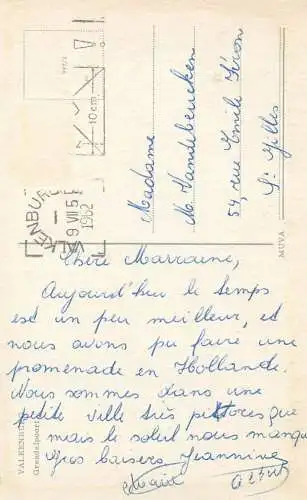 Chère Marraine,
Aujourd'hui le temps
est un peu meilleur, et
nous avons pu faire une
promenade en Hollande.
Nous sommes dans une
petite ville très pittoresque
mais le soleil nous manque
Gros baisers Jeannine
Madame
M. Vandebeucken
54, rue Emile Féron
St Gilles
VALKENBURG
9 VII 5
1962
10 cm.
MUVA
VALKENBURG
Grendelpoort